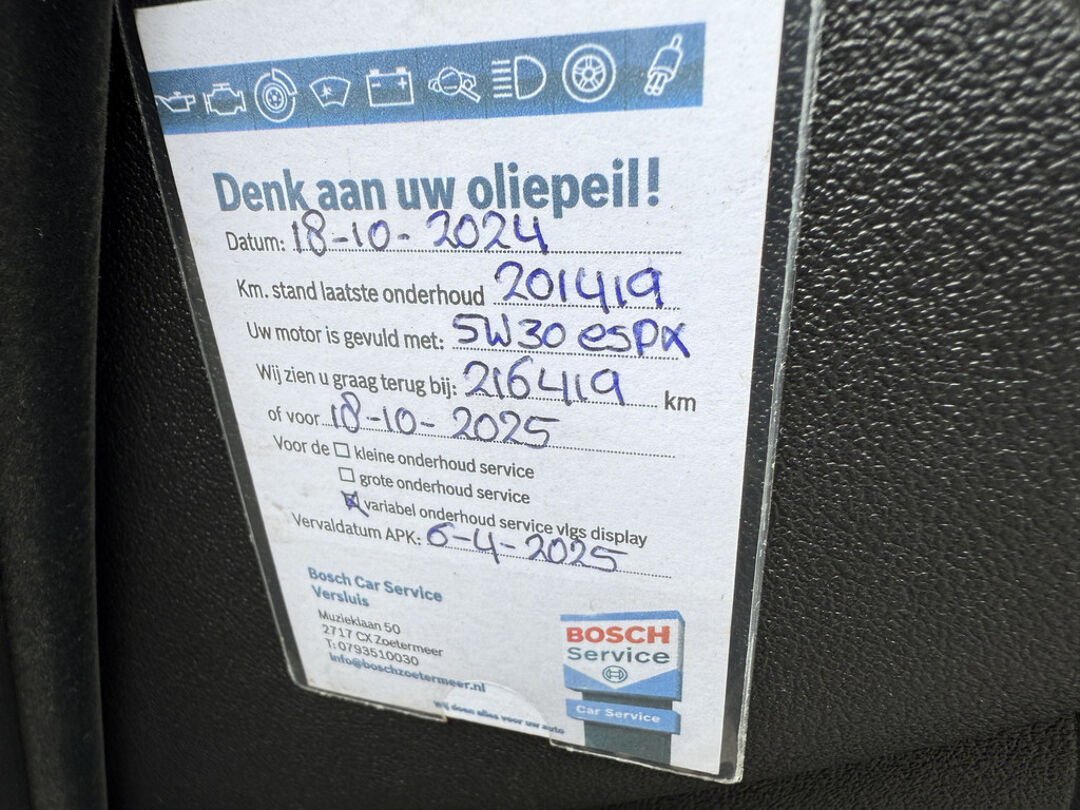 Denk aan uw oliepeil!
Datum: 18-10-2024
Km. stand laatste onderhoud 201419
Uw motor is gevuld met: 5W30 espx
Wij zien u graag terug bij: 216419 km
of voor 18-10-2025
Voor de kleine onderhoud service
grote onderhoud service
variabel onderhoud service vlgs display
Vervaldatum APK: 6-4-2025
Bosch Car Service
Versluis
Muzieklaan 50
2717 CX Zoetermeer
T: 0793510030
info@boschzoetermeer.nl
Wij doen alles voor uw auto
BOSCH
Service
Car Service